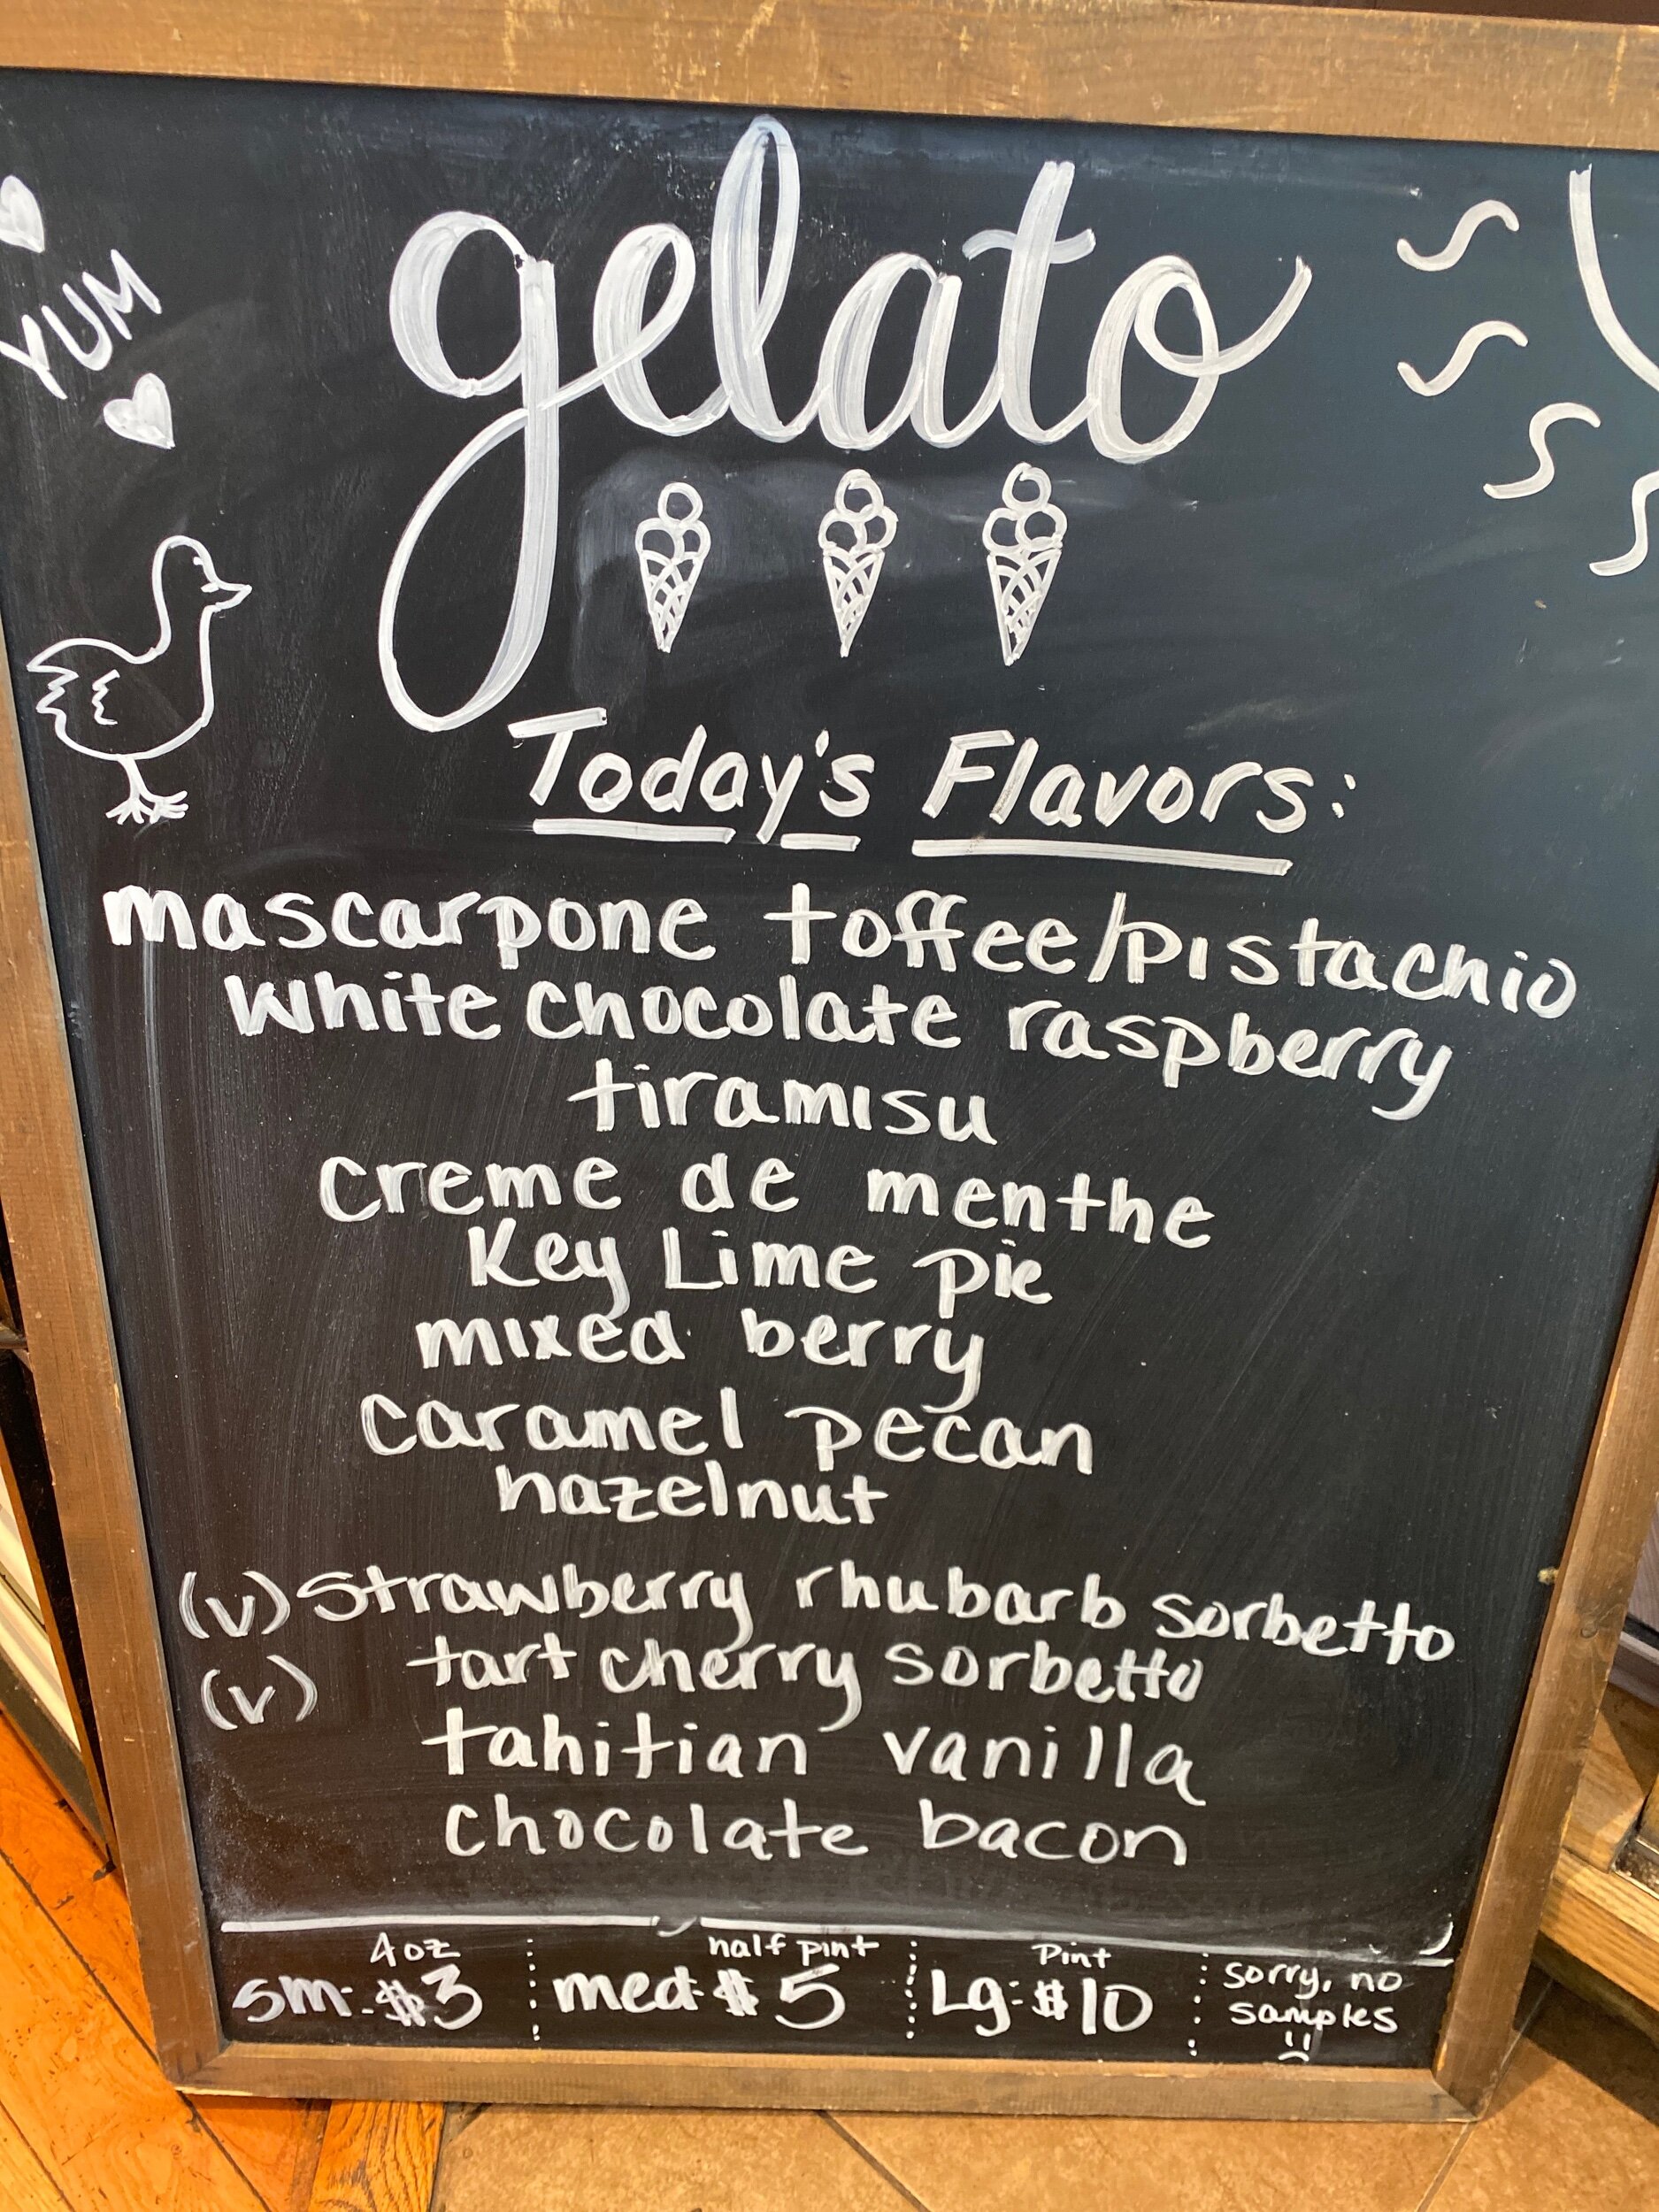 YUM
gelato
Today's Flavors:
mascarpone toffee/pistachio
white chocolate raspberry
tiramisu
creme de menthe
Key Lime pie
mixed berry
caramel pecan
hazelnut
(v) strawberry rhubarb sorbetto
(v) tart cherry sorbetto
tahitian vanilla
chocolate bacon
4oz
sm: $3
half pint
med: $5
Pint
Lg: $10
sorry, no
samples
:(